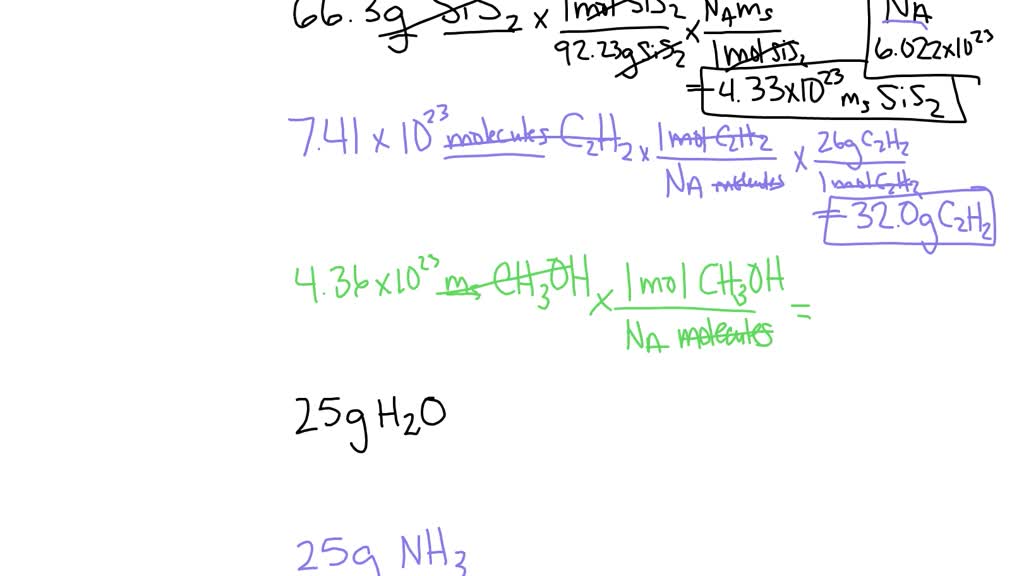 66.3g SiS₂ x 1mol SiS₂ / 92.23g SiS₂ x NA ms / 1mol SiS₂
NA
6.022x10²³
= 4.33x10²³ ms SiS₂
7.41 x 10²³ molecules C₂H₂ x 1mol C₂H₂ / NA molecules x 26g C₂H₂ / 1mol C₂H₂
= 32.0g C₂H₂
4.36x10²³ ms CH₃OH x 1mol CH₃OH / NA molecules =
25g H₂O
25g NH₃